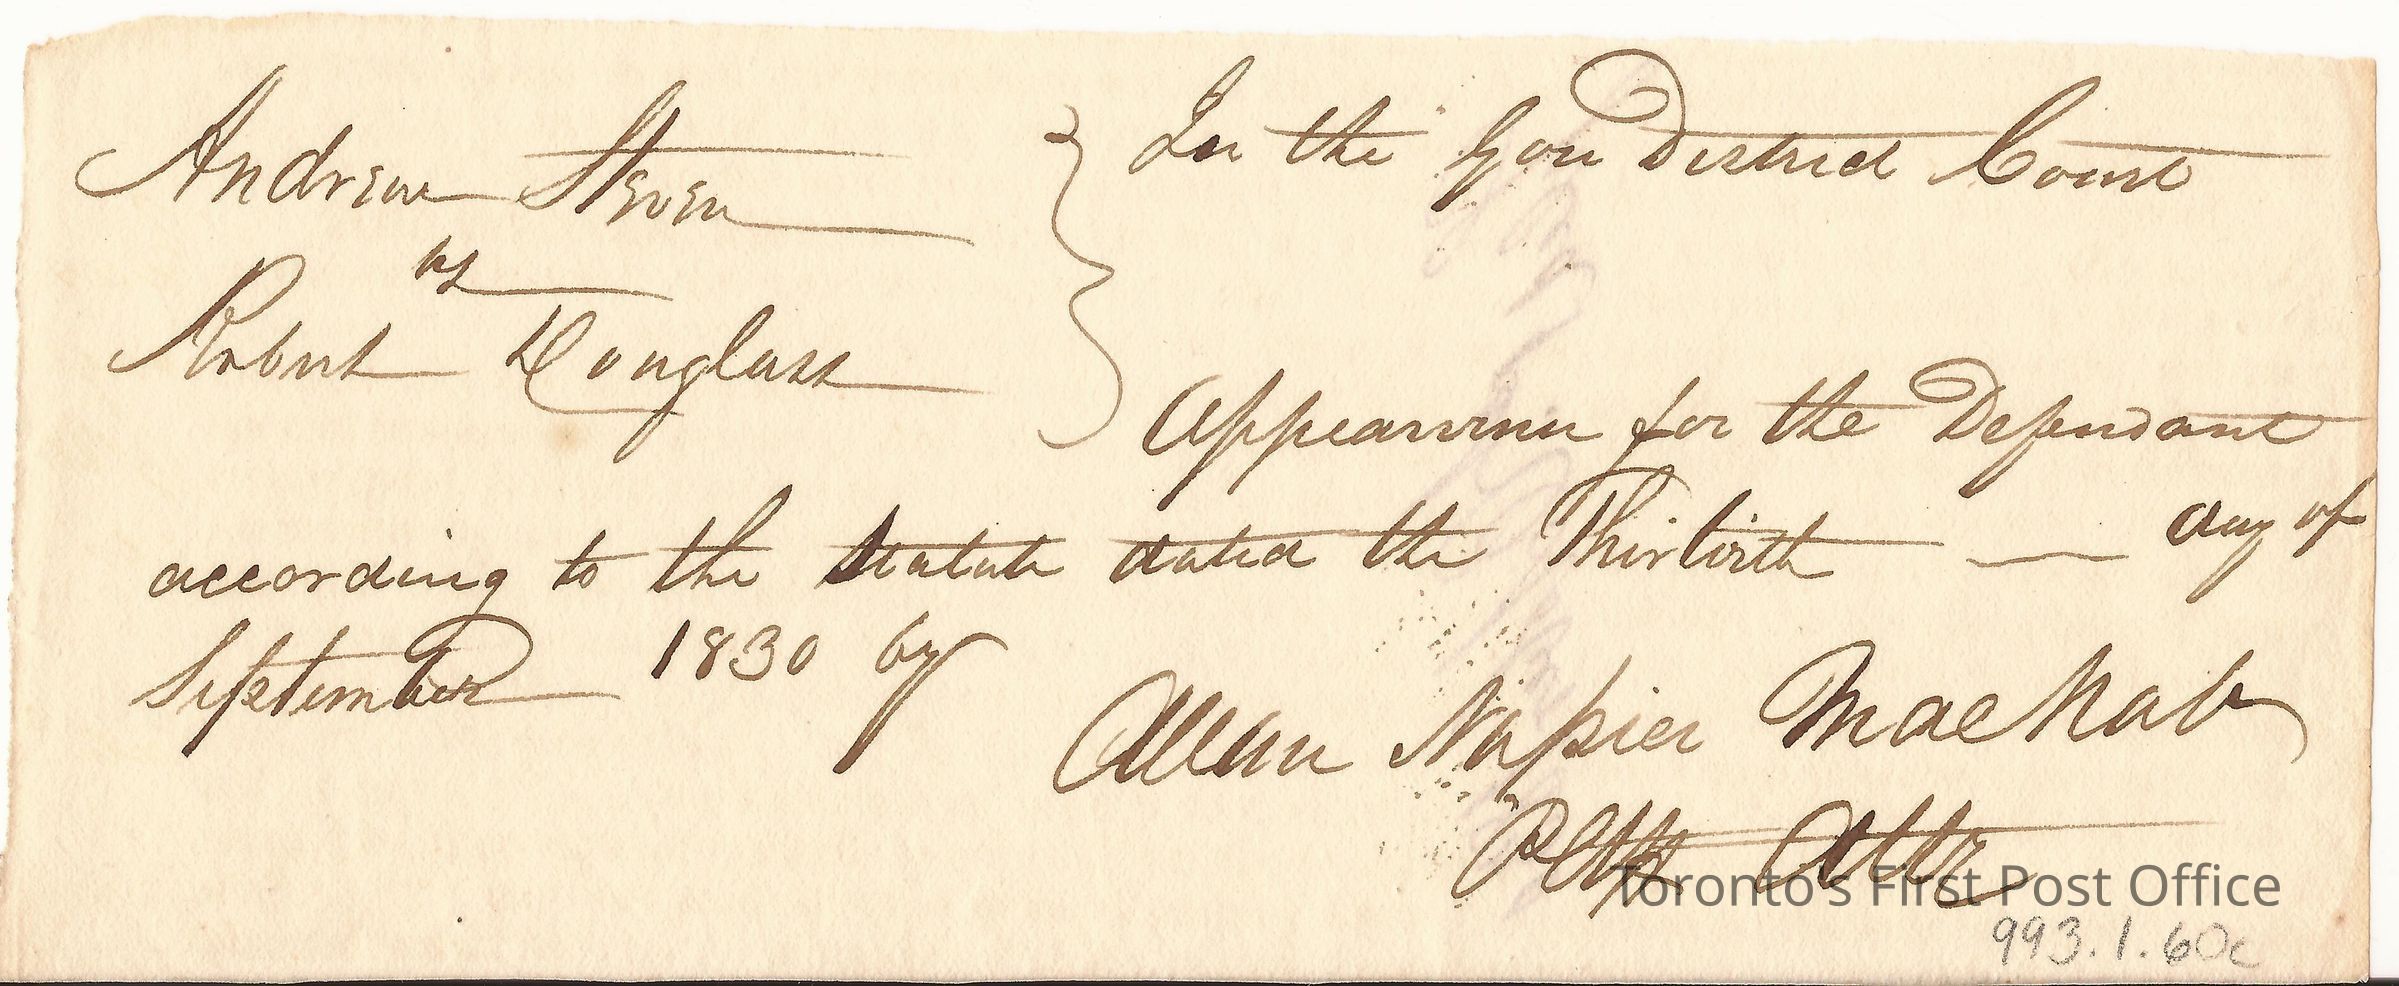 Andrew Steven
vs
Robert Douglass
In the Gore District Court
Appearance for the Defendant
according to the statute dated the Thirtieth — day of
September 1830 by
Allan Napier MacNab
Plffs Atty
Toronto's First Post Office
993.1.60c